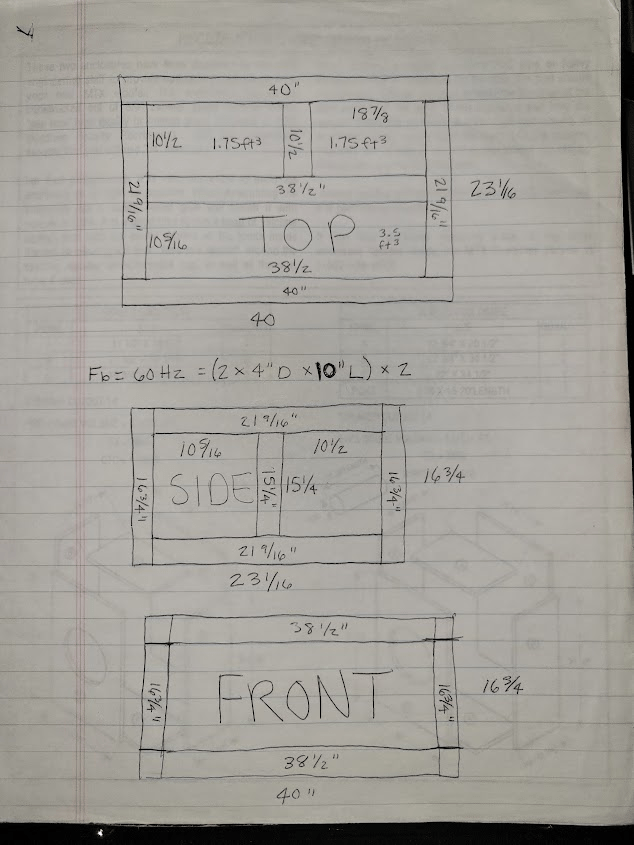 7
40"
18 7/8
10 1/2 1.75ft³ 10 1/2 1.75ft³
21 9/16" 38 1/2" 21 9/16" 23 1/16
10 5/16 TOP 3.5 ft³
38 1/2
40"
40
Fb = 60Hz = (2 x 4" D x 10" L) x 2
21 9/16"
10 5/16 10 1/2
16 3/4" SIDE 15 1/4" 15 1/4 16 3/4" 16 3/4
21 9/16"
23 1/16
38 1/2"
16 3/4" FRONT 16 3/4" 16 3/4
38 1/2"
40"